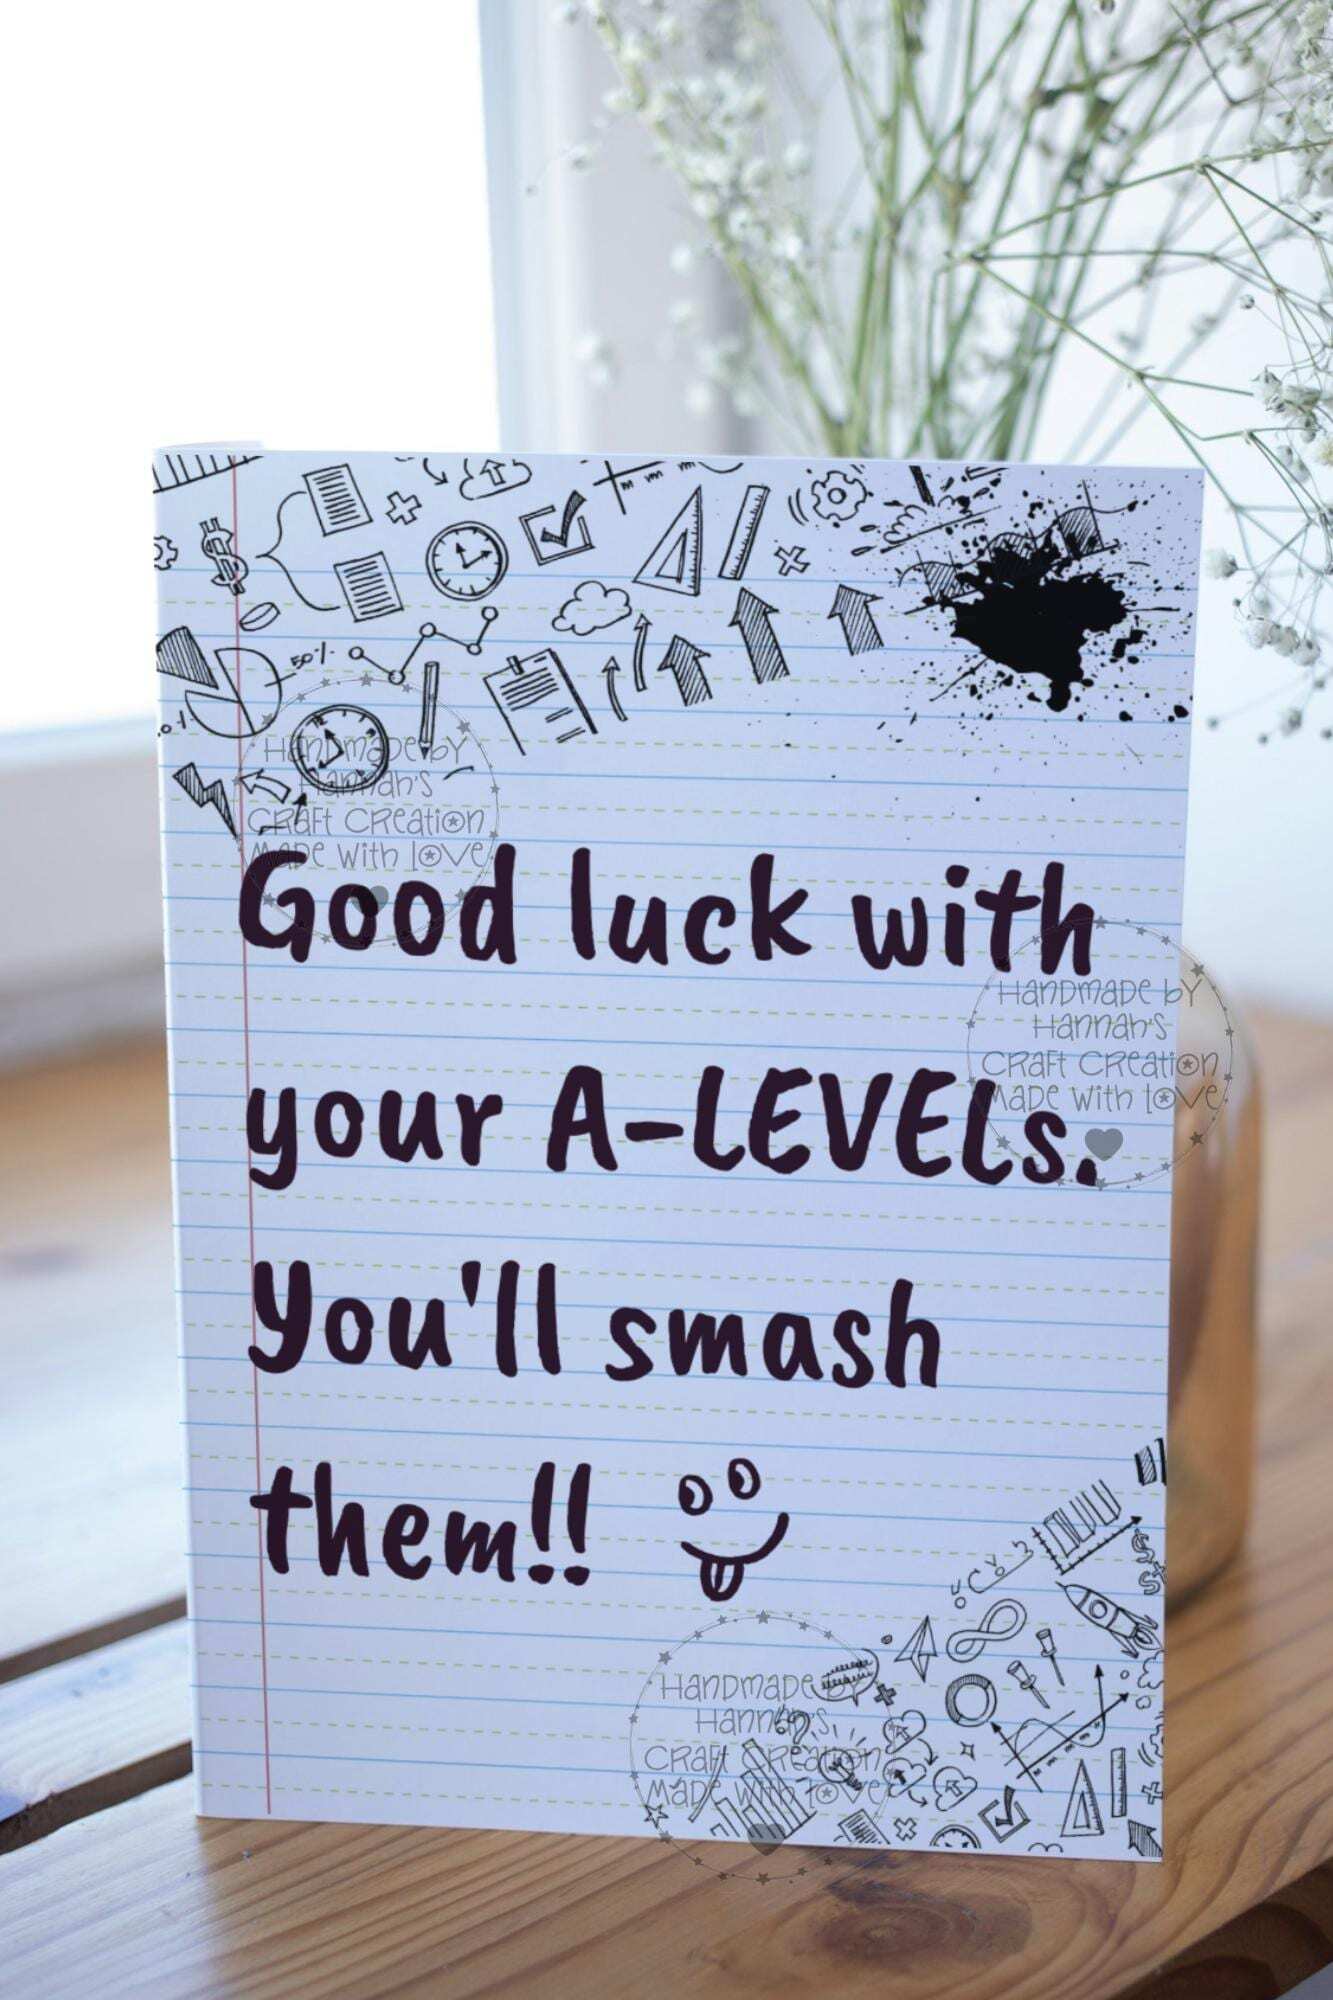 50%
Handmade by
Hannah's
Craft Creation
Made with love
Good luck with
Handmade by
Hannah's
Craft Creation
Made with love
your A-LEVELs.
You'll smash
them!!
Handmade by
Hannah's
Craft Creation
Made with love